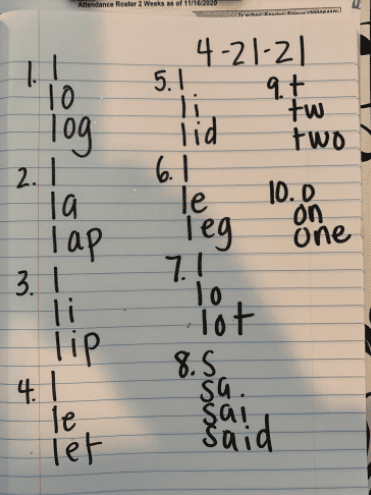 Attendance Roster 2 Weeks as of 11/16/2020
4-21-21
1. l
lo
log
2. l
la
lap
3. l
li
lip
4. l
le
let
5. l
li
lid
6. l
le
leg
7. l
lo
lot
8. s
sa.
sai
said
9. t
tw
two
10. o
on
one